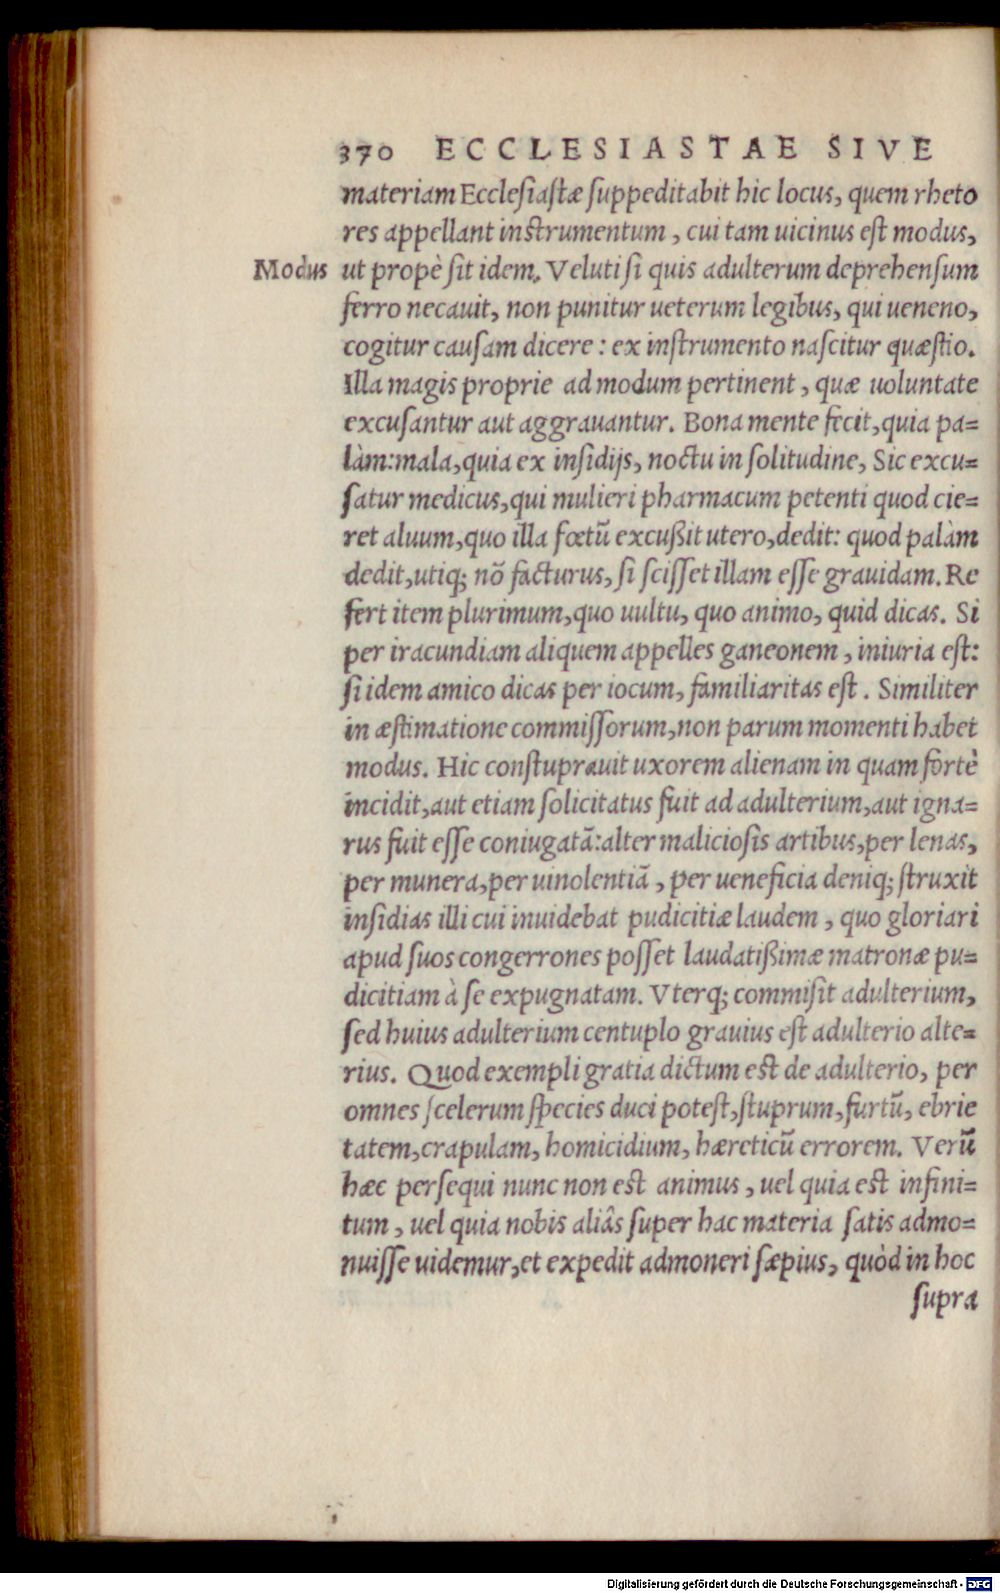 370 ECCLESIASTAE SIVE
materiam Ecclesiastæ suppeditabit hic locus, quem rheto
res appellant instrumentum, cui tam uicinus est modus,
Modus ut propè sit idem. Veluti si quis adulterum deprehensum
ferro necauit, non punitur ueterum legibus, qui ueneno,
cogitur causam dicere: ex instrumento nascitur quæstio.
Illa magis proprie ad modum pertinent, quæ uoluntate
excusantur aut aggrauantur. Bona mente fecit, quia pa=
làm: mala, quia ex insidijs, noctu in solitudine, Sic excu=
satur medicus, qui mulieri pharmacum petenti quod cie=
ret aluum, quo illa fœtũ excußit utero, dedit: quod palàm
dedit, utiq; nõ facturus, si scisset illam esse grauidam. Re
fert item plurimum, quo uultu, quo animo, quid dicas. Si
per iracundiam aliquem appelles ganeonem, iniuria est:
si idem amico dicas per iocum, familiaritas est. Similiter
in æstimatione commissorum, non parum momenti habet
modus. Hic constuprauit uxorem alienam in quam fortè
incidit, aut etiam solicitatus fuit ad adulterium, aut igna=
rus fuit esse coniugatã: alter maliciosis artibus, per lenas,
per munera, per uinolentiã, per ueneficia deniq; struxit
insidias illi cui inuidebat pudicitiæ laudem, quo gloriari
apud suos congerrones posset laudatißimæ matronæ pu=
dicitiam à se expugnatam. Vterq; commisit adulterium,
sed huius adulterium centuplo grauius est adulterio alte=
rius. Quod exempli gratia dictum est de adulterio, per
omnes scelerum species duci potest, stuprum, furtũ, ebrie
tatem, crapulam, homicidium, hæreticũ errorem. Verũ
hæc persequi nunc non est animus, uel quia est infini=
tum, uel quia nobis aliâs super hac materia satis admo=
nuisse uidemur, et expedit admoneri sæpius, quòd in hoc
supra
Digitalisierung gefördert durch die Deutsche Forschungsgemeinschaft - DFG